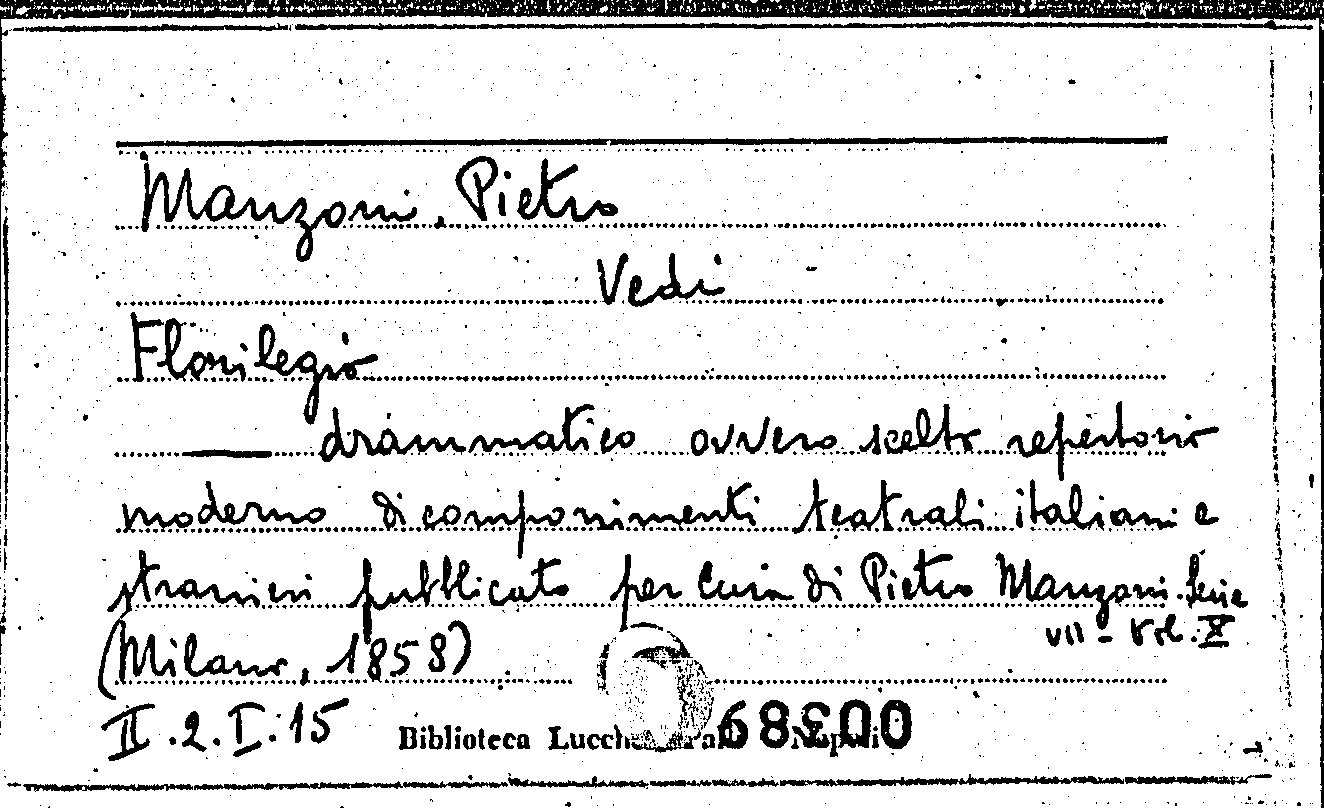 Manzoni, Pietro
Vedi
Florilegio
— drammatico ovvero scelto repertorio
moderno di componimenti teatrali italiani e
stranieri pubblicato per cura di Pietro Manzoni. Serie
VII - Vol. X
(Milano, 1858)
II.2.I.15
Biblioteca